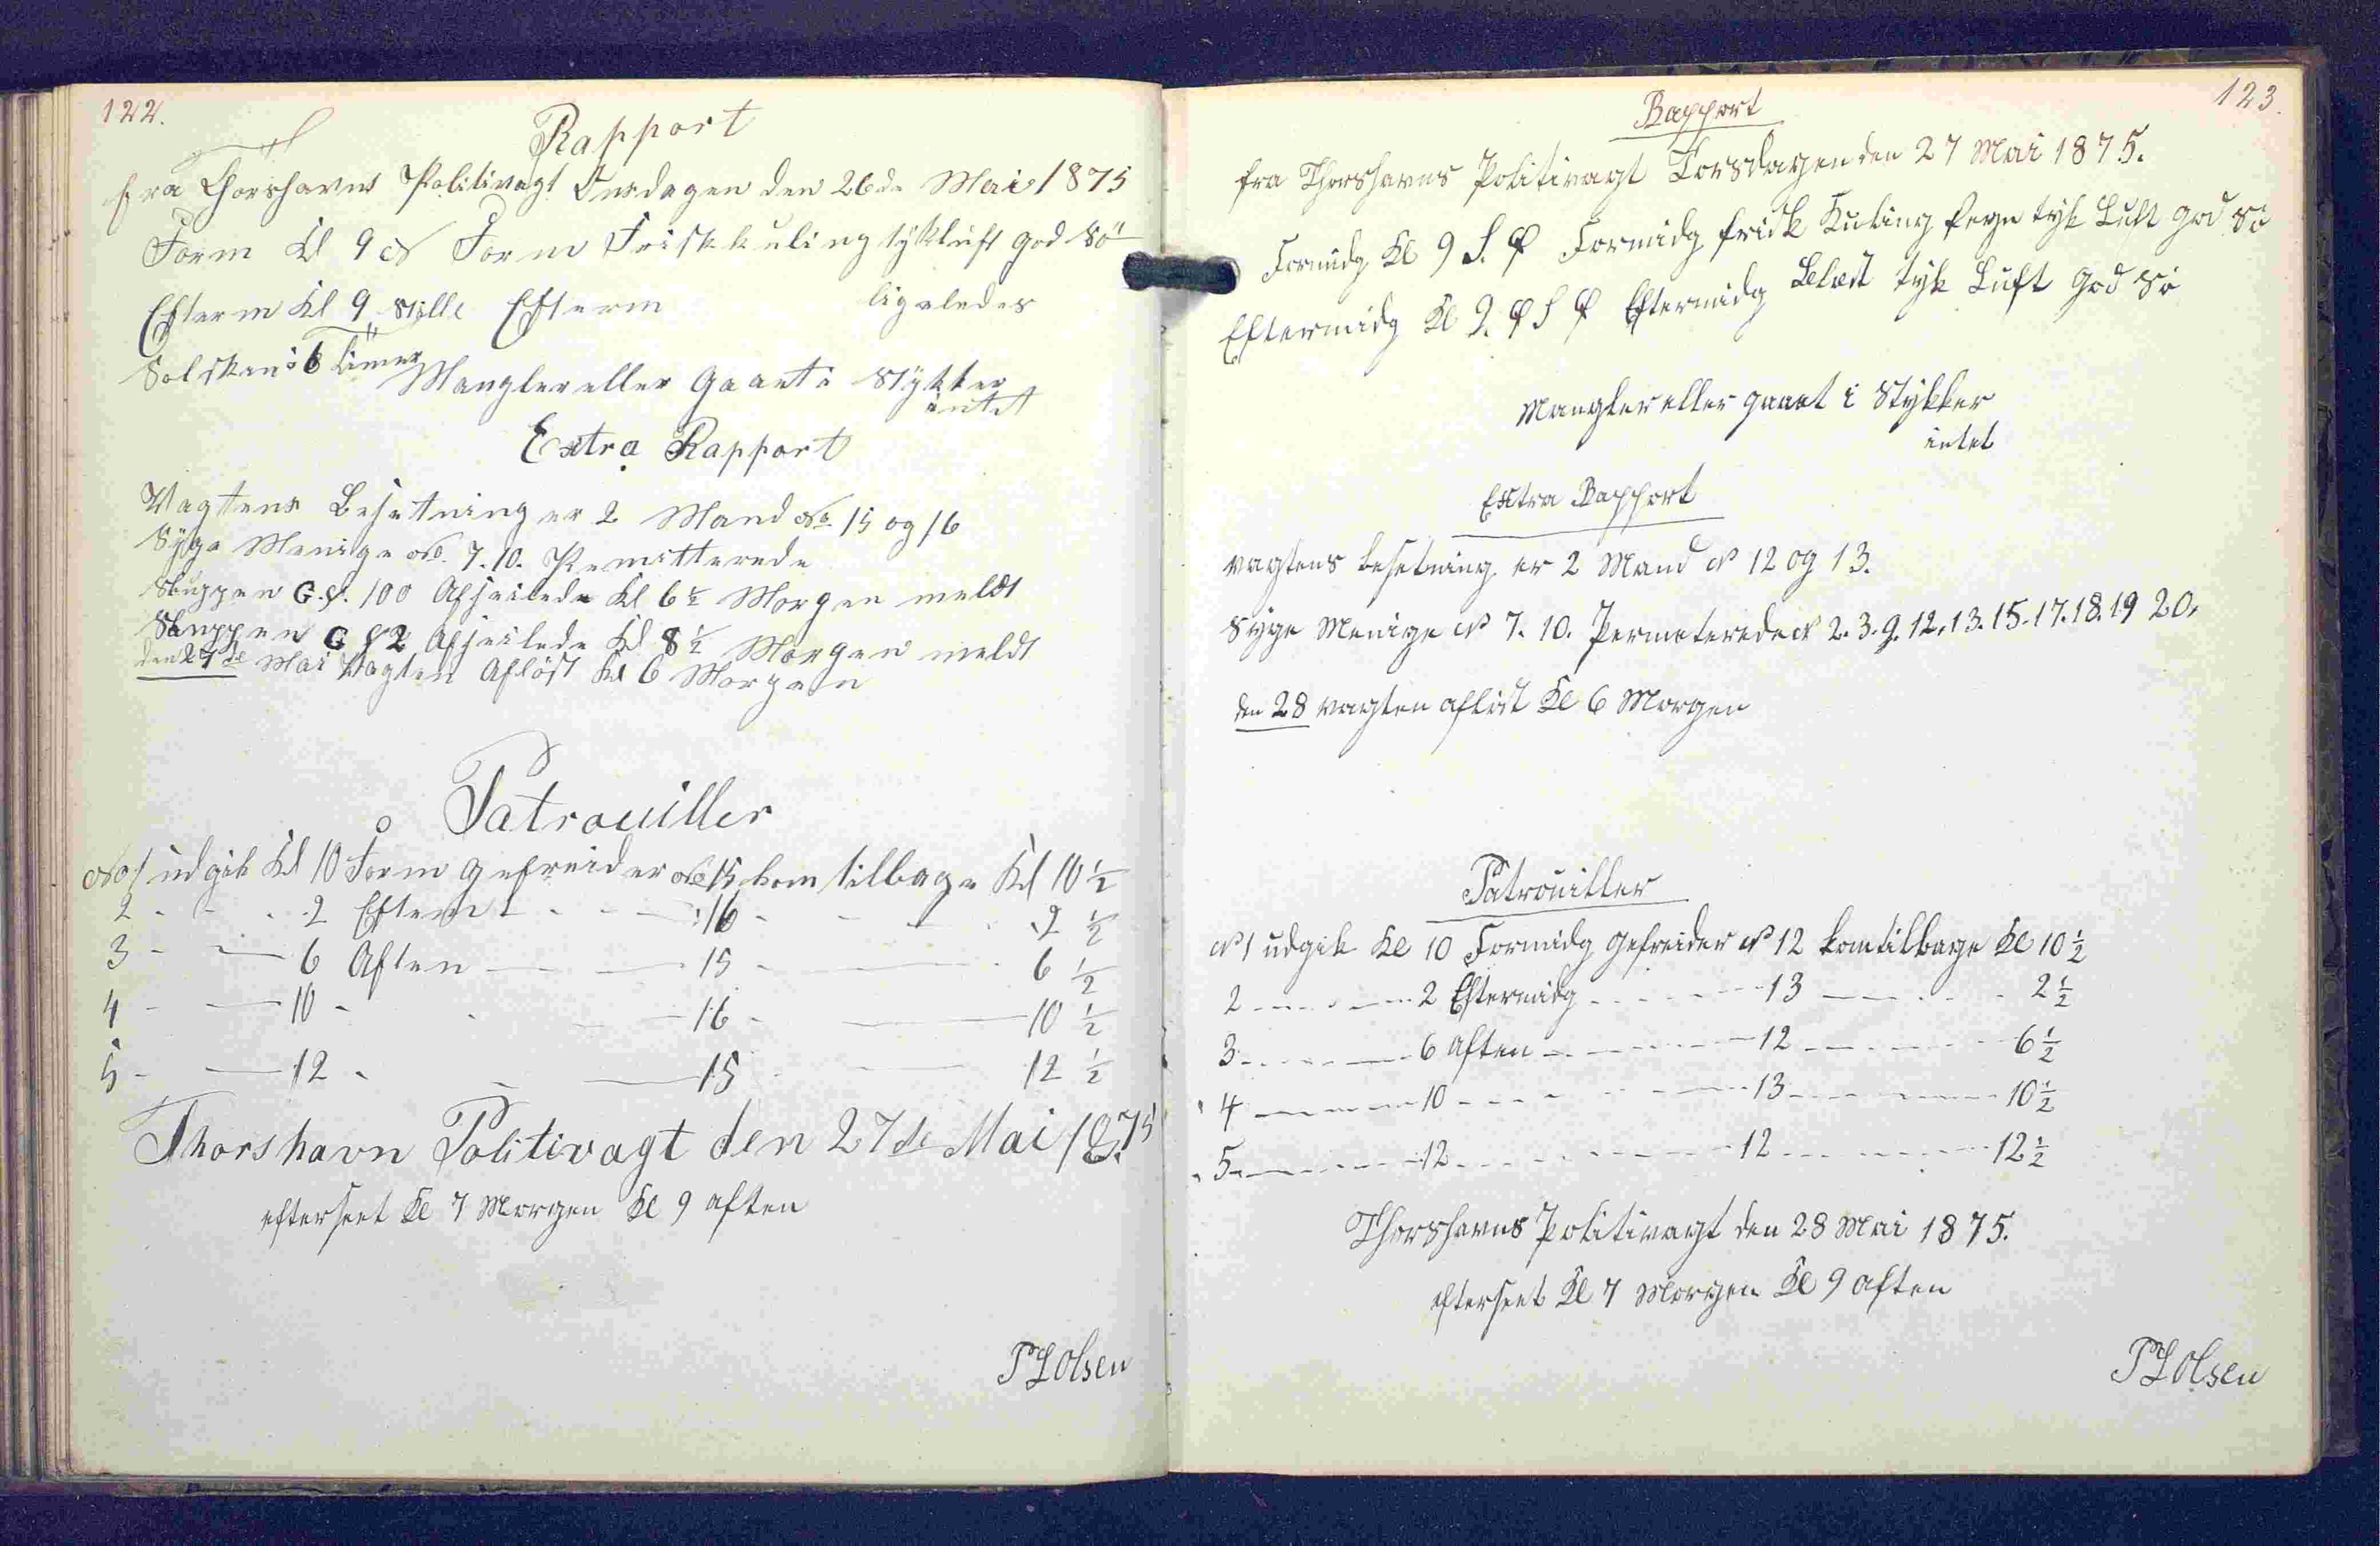 122.
Rapport
fra Thorshavns Politivagt Onsdagen den 26de Mai 1875
Form Kl 9 N Form Frisk kuling tykluft god Sö
Efterm Kl 9 Stille Efterm ligeledes
Solskin i 6 Timer
Mangler eller Gaaet i Stykker
intet
Extra Rapport
Vagtens Besetning er 2 Mand No 15 og 16
Syge Menige No. 7. 10. Permitterede
Sluppen G. S. 100 Afseilede Kl 6½ Morgen meldt
Sluppen G S 2 Afseilede Kl 8½ Morgen meldt
den 27de Mai Vagten Aflöst Kl 6 Morgen
Patrouiller
No 1 udgik Kl 10 Form gefreider No 15 kom tilbage Kl 10 ½
2 - - - 2 Efterm - - - 16 - - - 2 ½
3 - - 6 Aften - - 15 - - 6 ½
4 - - 10 - - - 16 - - 10 ½
5 - - 12 - - - 15 - - 12 ½
Thorshavn Politivagt den 27de Mai 1875
efterseet Kl 7 Morgen Kl 9 aften
P L Olsen
123.
Rapport
fra Thorshavns Politivagt Torsdagen den 27 Mai 1875.
Formidg Kl 9 S. O Formidg frisk Kuling Regn tyk Luft god Sö
Eftermidg Kl 9. O S O Eftermidg Blæst tyk Luft god Sö
Mangler eller gaaet i Stykker
intet
Extra Rapport
vagtens besetning er 2 Mand No 12 og 13.
Syge Menige No 7. 10. Permeterede No 2. 3. 9. 12. 13. 15. 17. 18. 19 20.
den 28 vagten aflöst Kl 6 Morgen
Patrouiller
No 1 udgik Kl 10 Formidg gefreider No 12 kom tilbage Kl 10 ½
2 - - - 2 Eftermidg - - - 13 - - - 2 ½
3 - - - 6 Aften - - - 12 - - - 6 ½
4 - - - 10 - - - 13 - - - 10 ½
5 - - - 12 - - - 12 - - - 12 ½
Thorshavns Politivagt den 28 Mai 1875.
efterseet Kl 7 Morgen Kl 9 aften
P L Olsen